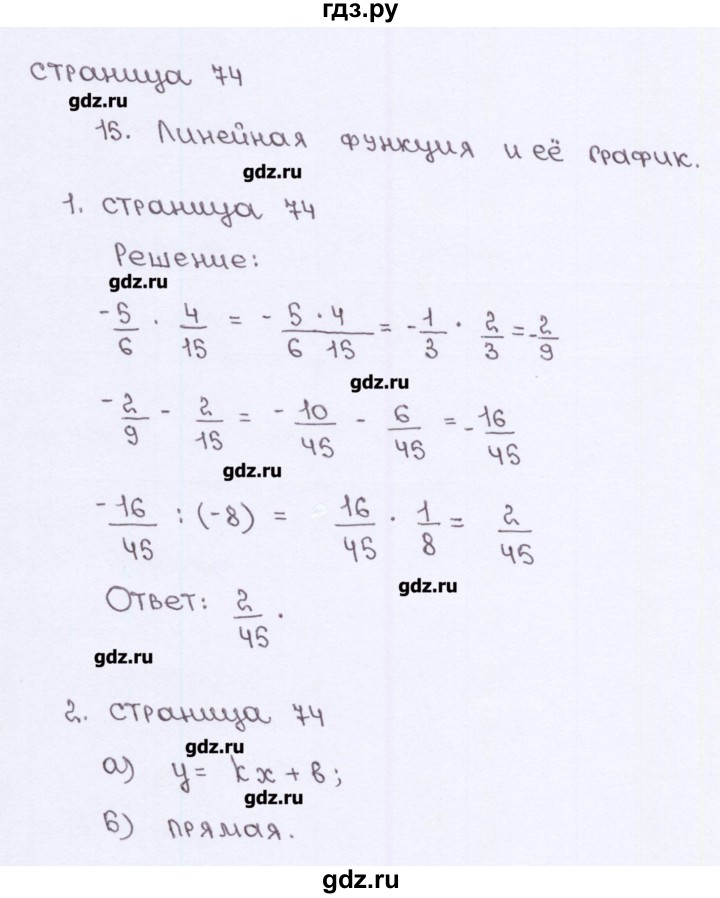 гдз.ру
страница 74
gdz.ru
15. Линейная функция и её график.
gdz.ru
1. страница 74
Решение:
gdz.ru
-5/6 · 4/15 = - 5·4/6 15 = -1/3 · 2/3 = -2/9
gdz.ru
-2/9 - 2/15 = -10/45 - 6/45 = -16/45
gdz.ru
-16/45 : (-8) = 16/45 · 1/8 = 2/45
gdz.ru
Ответ: 2/45.
gdz.ru
2. страница 74
gdz.ru
а) y = kx + b;
gdz.ru
б) прямая.
gdz.ru